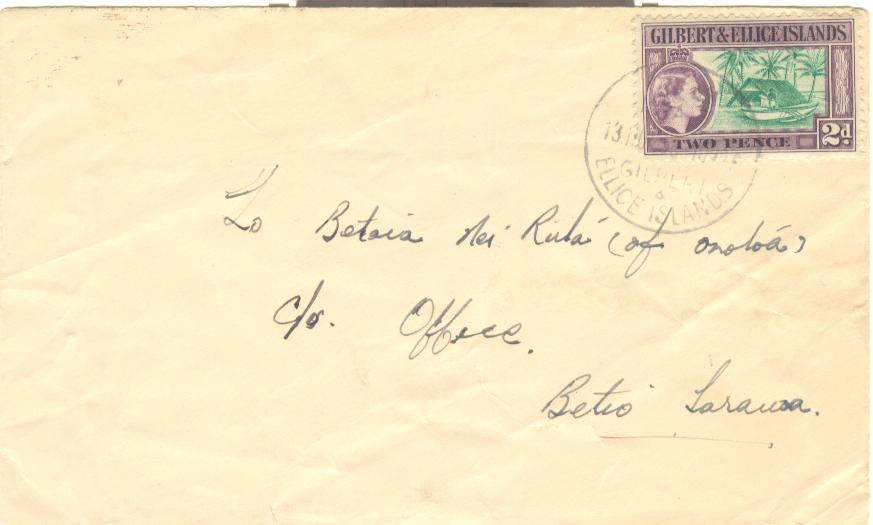 GILBERT & ELLICE ISLANDS
TWO PENCE 2d
GILBERT
&
ELLICE ISLANDS
To Betaia Nei Rutá (of onotoá)
c/o. Office.
Betio Tarawa.